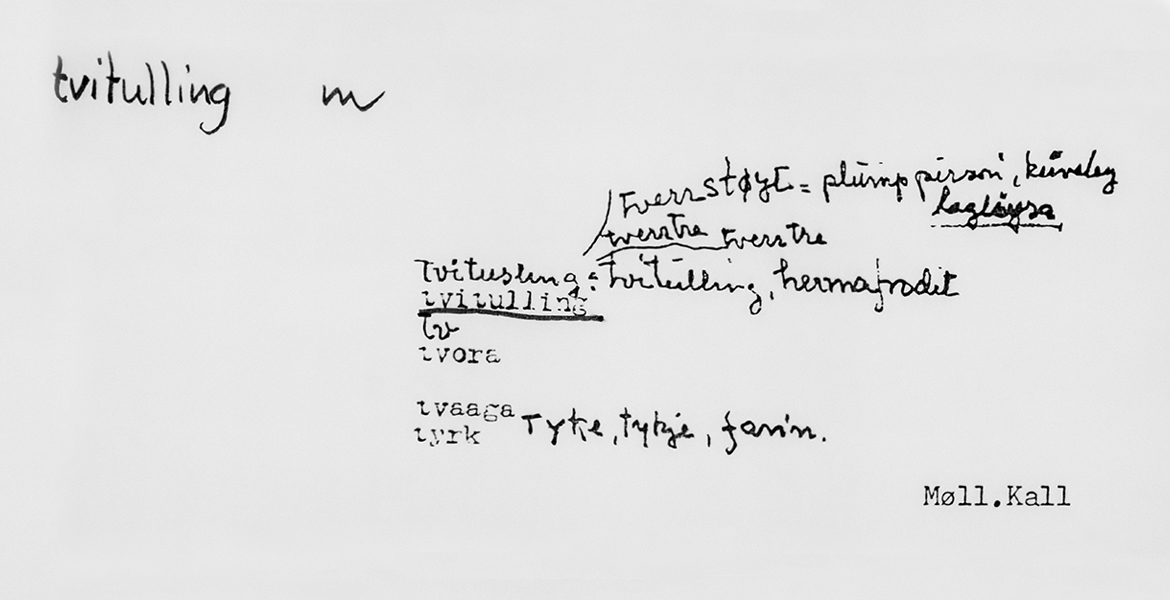 tvitulling m
tverrstøyt = plump person,
lagløysa
tverrtre tverrtre
tvitusling: tvitulling, hermafrodit
tvitulling
tv
tvora
tvaaga
tyrk Tyke, tykje, fan'n.
Møll.Kall